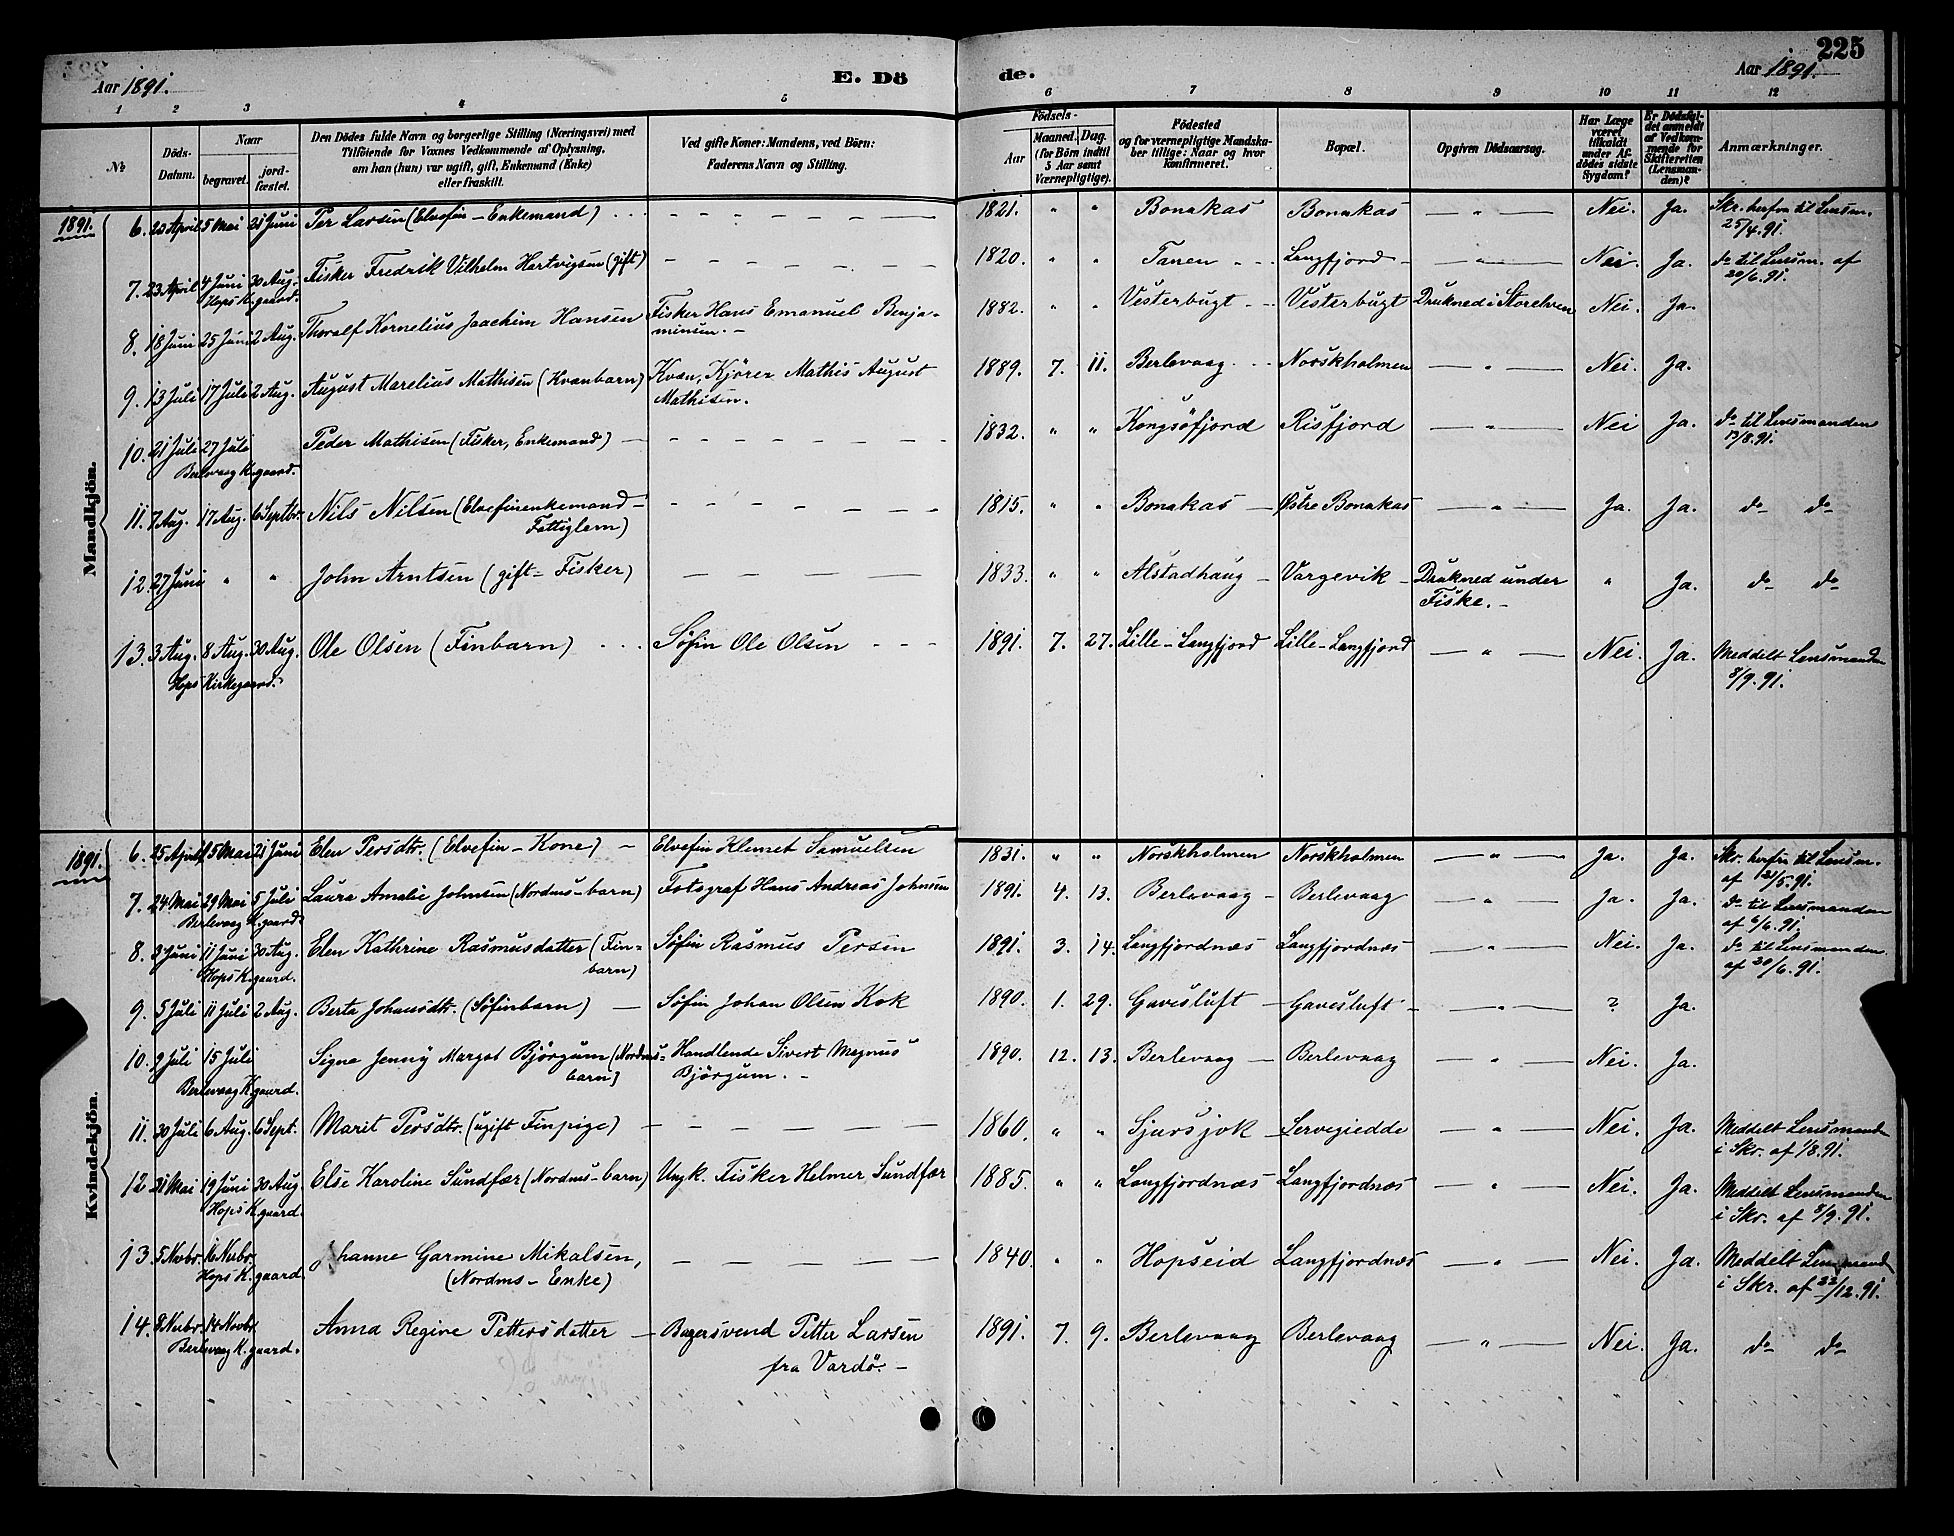 225
Aar 1891. E. Dö de. Aar 1891.
1 2 3 4 5 6 7 8 9 10 11 12
№
Döds-Datum.
Naar
begravet.
jord-fæstet.
Den Dödes fulde Navn og borgerlige Stilling (Næringsvei) med
Tilföiende for Voxnes Vedkommende af Oplysning,
om han (hun) var ugift, gift, Enkemand (Enke)
eller fraskilt.
Ved gifte Koner: Mandens, ved Börn:
Faderens Navn og Stilling.
Födsels-
Aar
Maaned. Dag.
(for Börn indtil
5 Aar samt
Værnepligtige).
Födested
og for værnepligtige Mandska-
ber tillige: Naar og hvor
konfirmeret.
Bopæl.
Opgiven Dödsaarsag.
Har Læge
været
tilkaldt
under Af-
dödes sidste
Sygdom?
Er Dödsfal-
det anmeldt
af Vedkom-
mende for
Skifteretten
(Lensman-
den)?
Anmærkninger.
Mandkjön.
1891. 6. 25 April 5 Mai 21 Juni Per Larsen (Elvefin - Enkemand) 1821. " " Bonakas Bonakas " Nei. Ja. Skr. herfra til Lensm.
25/4.91.
7. 23 April 4 Juni 30 Aug. Fisker Fredrik Vilhelm Hartvigsen (gift) 1820. " " Tanen Langfjord " Nei. Ja. do til Lensm. af
Hops K.gaard. 20/6.91.
8. 18 Juni 25 Juni 2 Aug. Thoralf Kornelius Joachim Hansen Fisker Hans Emanuel Benja-
minsen. 1882. " " Vesterbugt Vesterbugt Druknet i Storelven Nei. Ja.
9. 13 Juli 17 Juli 2 Aug. August Marelius Mathisen (Kvænbarn) Kvæn, Kjörer Mathis August
Mathisen. 1889. 7. 11. Berlevaag Norskholmen " Nei. Ja.
10. 21 Juli 27 Juli Peder Mathisen (Fisker, Enkemand) 1832. " " Kongsöfjord Risfjord " Nei Ja. do til Lensmanden
Berlevaag K.gaard. 13/8.91.
11. 7 Aug. 17 Aug. 6 Septbr. Nils Nilsen (Elvefinenkemand -
Fattiglem) 1815. " " Bonakas Østre Bonakas " Ja. Ja. do do
12. 27 Juni " " John Arntsen (gift - Fisker) 1833. " " Alstadhaug Vargevik Druknet under
Fiske. " Ja. do do
13. 3 Aug. 8 Aug. 30 Aug. Ole Olsen (Finbarn) Søfin Ole Olsen 1891. 7. 27. Lille-Langfjord Lille-Langfjord " Nei. Ja. Meddelt Lensmanden
Hops Kirkegaard. 8/9.91.
Kvindekjön.
1891. 6. 25 April 5 Mai 21 Juni Elen Persdtr. (Elvefin - Kone) Elvefin Klemet Samuelsen 1831. " " Norskholmen Norskholmen " Ja. Ja. Skr. herfra til Lensm.
af 21/5.91.
7. 24 Mai 29 Mai 5 Juli Laura Amalie Johnsen (Nordms-barn) Fotograf Hans Andreas Johnsen 1891. 4. 13. Berlevaag Berlevaag " Ja. Ja. do til Lensmanden
Berlevaag K.gaard. af 6/6.91.
8. 3 Juni 11 Juni 30 Aug. Elen Kathrine Rasmusdatter (Fin-
barn) Søfin Rasmus Persen 1891. 3. 14. Langfjordnæs Langfjordnæs " Nei. Ja. do til Lensmanden
Hops K.gaard. af 20/6.91.
9. 5 Juli 11 Juli 2 Aug. Berta Johansdtr. (Søfinbarn) Søfin Johan Olsen Kok 1890. 1. 29. Gavesluft Gavesluft " ? Ja.
10. 9 Juli 15 Juli Signe Jenny Margot Björgum (Nordms-
barn) Handlende Sivert Magnus
Björgum. 1890. 12. 13. Berlevaag Berlevaag " Nei. Ja.
Berlevaag K.gaard.
11. 30 Juli 6 Aug. 6 Sept. Marit Persdtr. (ugift Finpige) 1860. " " Sjursjok Lervegiedde " Nei. Ja. Meddelt Lensmanden
i Skr. af 1/8.91.
12. 21 Mai 19 Juni 30 Aug. Else Karoline Sundfær (Nordms-barn) Ungk. Fisker Helmer Sundfær 1885. " " Langfjordnæs Langfjordnæs " Nei. Ja. Meddelt Lensmanden
Hops K.gaard. i Skr. af 8/9.91.
13. 5 Novbr. 16 Novbr. Johanne Garmine Mikalsen,
(Nordms - Enke) 1840. " " Hopseid Langfjordnæs " Nei. Ja. Meddelt Lensmand
Hops K.gaard. i Skr. af 22/12.91.
14. 8 Novbr. 14 Novbr. Anna Regine Pettersdatter Bagersvend Petter Larsen
fra Vardö. 1891. 7. 9. Berlevaag Berlevaag " Nei. Ja. do do
Berlevaag K.gaard.